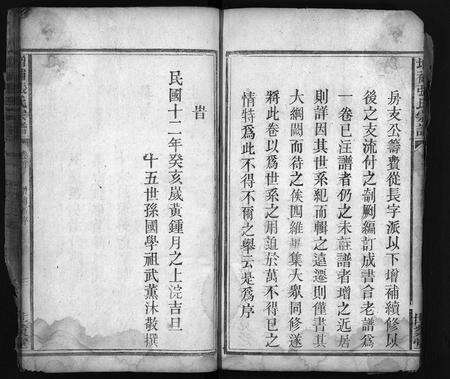 房支丕籌費從長字派以下增補續修以
後之支流付之剞劂編訂成書合老譜爲
一卷已注譜者仍之未註譜者增之近居
則詳因其世系紀而輯之遠遷則僅書其
大綱闕而待之俟四維 集大衆同修遂
將此卷以爲世系之 於萬不得已之
情特爲此不得不爾之舉云是爲序
旹
民國十二年癸亥歲黃鍾月之上浣吉旦
十五世孫國學祖武薰沐敬撰